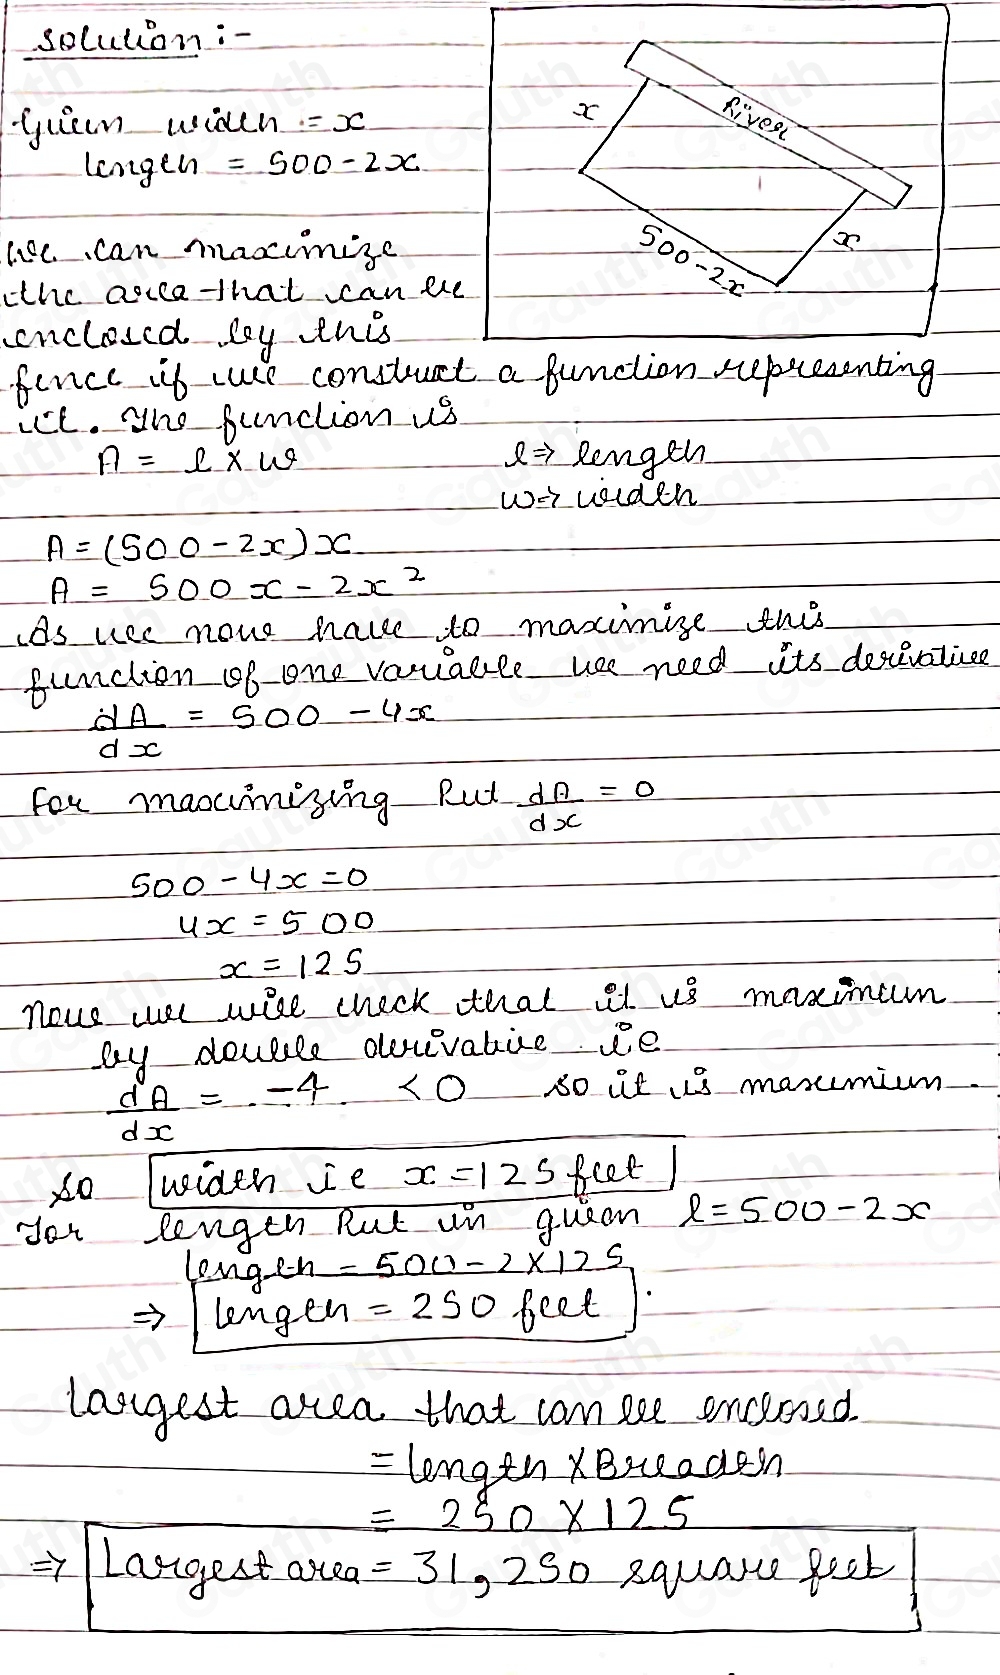 Solution :-
Given width = x
length = 500-2x
x
River
x
500-2x
We can maximize
the area that can be
enclosed by this
fence if we construct a function representing
it. The function is
A = l x w
l ⇒ length
w ⇒ width
A = (500-2x)x
A = 500x - 2x²
As we now have to maximize this
function of one variable we need its derivative
dA/dx = 500 - 4x
For maximizing Put dA/dx = 0
500-4x=0
4x = 500
x = 125
Now we will check that it is maximum
by double derivative i.e
dA/dx = -4 < 0 so it is maximum.
So width ie x = 125 feet
For length Put in given l = 500-2x
length = 500-2x125
⇒ length = 250 feet.
largest area that can be enclosed
= length x Breadth
= 250 x 125
⇒ Largest area = 31,250 square feet